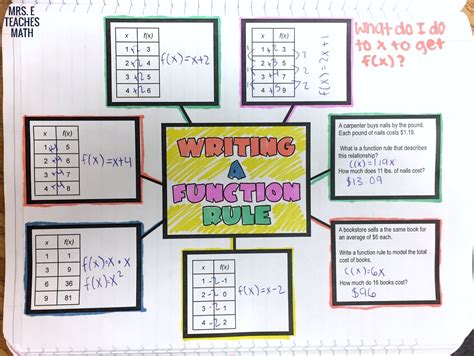 MRS. E
TEACHES
MATH
x f(x)
1 +2 3
2 +2 4
3 +2 5
4 +2 6
f(x)=x+2
x f(x)
1 3
2 5
3 7
4 9
2
2
2
f(x)=2x+1
What do I do
to x to get
f(x)?
x f(x)
1 5
2 6
3 7
4 8
f(x)=x+4
WRITING
A
FUNCTION
RULE
A carpenter buys nails by the pound.
Each pound of nails costs $1.19.
What is a function rule that describes
this relationship?
C(x)=1.19x
How much does 11 lbs. of nails cost?
$13.09
x f(x)
1 1
3 9
6 36
9 81
f(x)=x • x
f(x)=x²
x f(x)
1 -2 -1
2 -2 0
3 -2 1
4 -2 2
f(x)=x-2
A bookstore sells the same book for
an average of $6 each.
Write a function rule to model the total
cost of books.
C(x)=6x
How much do 16 books cost?
$96